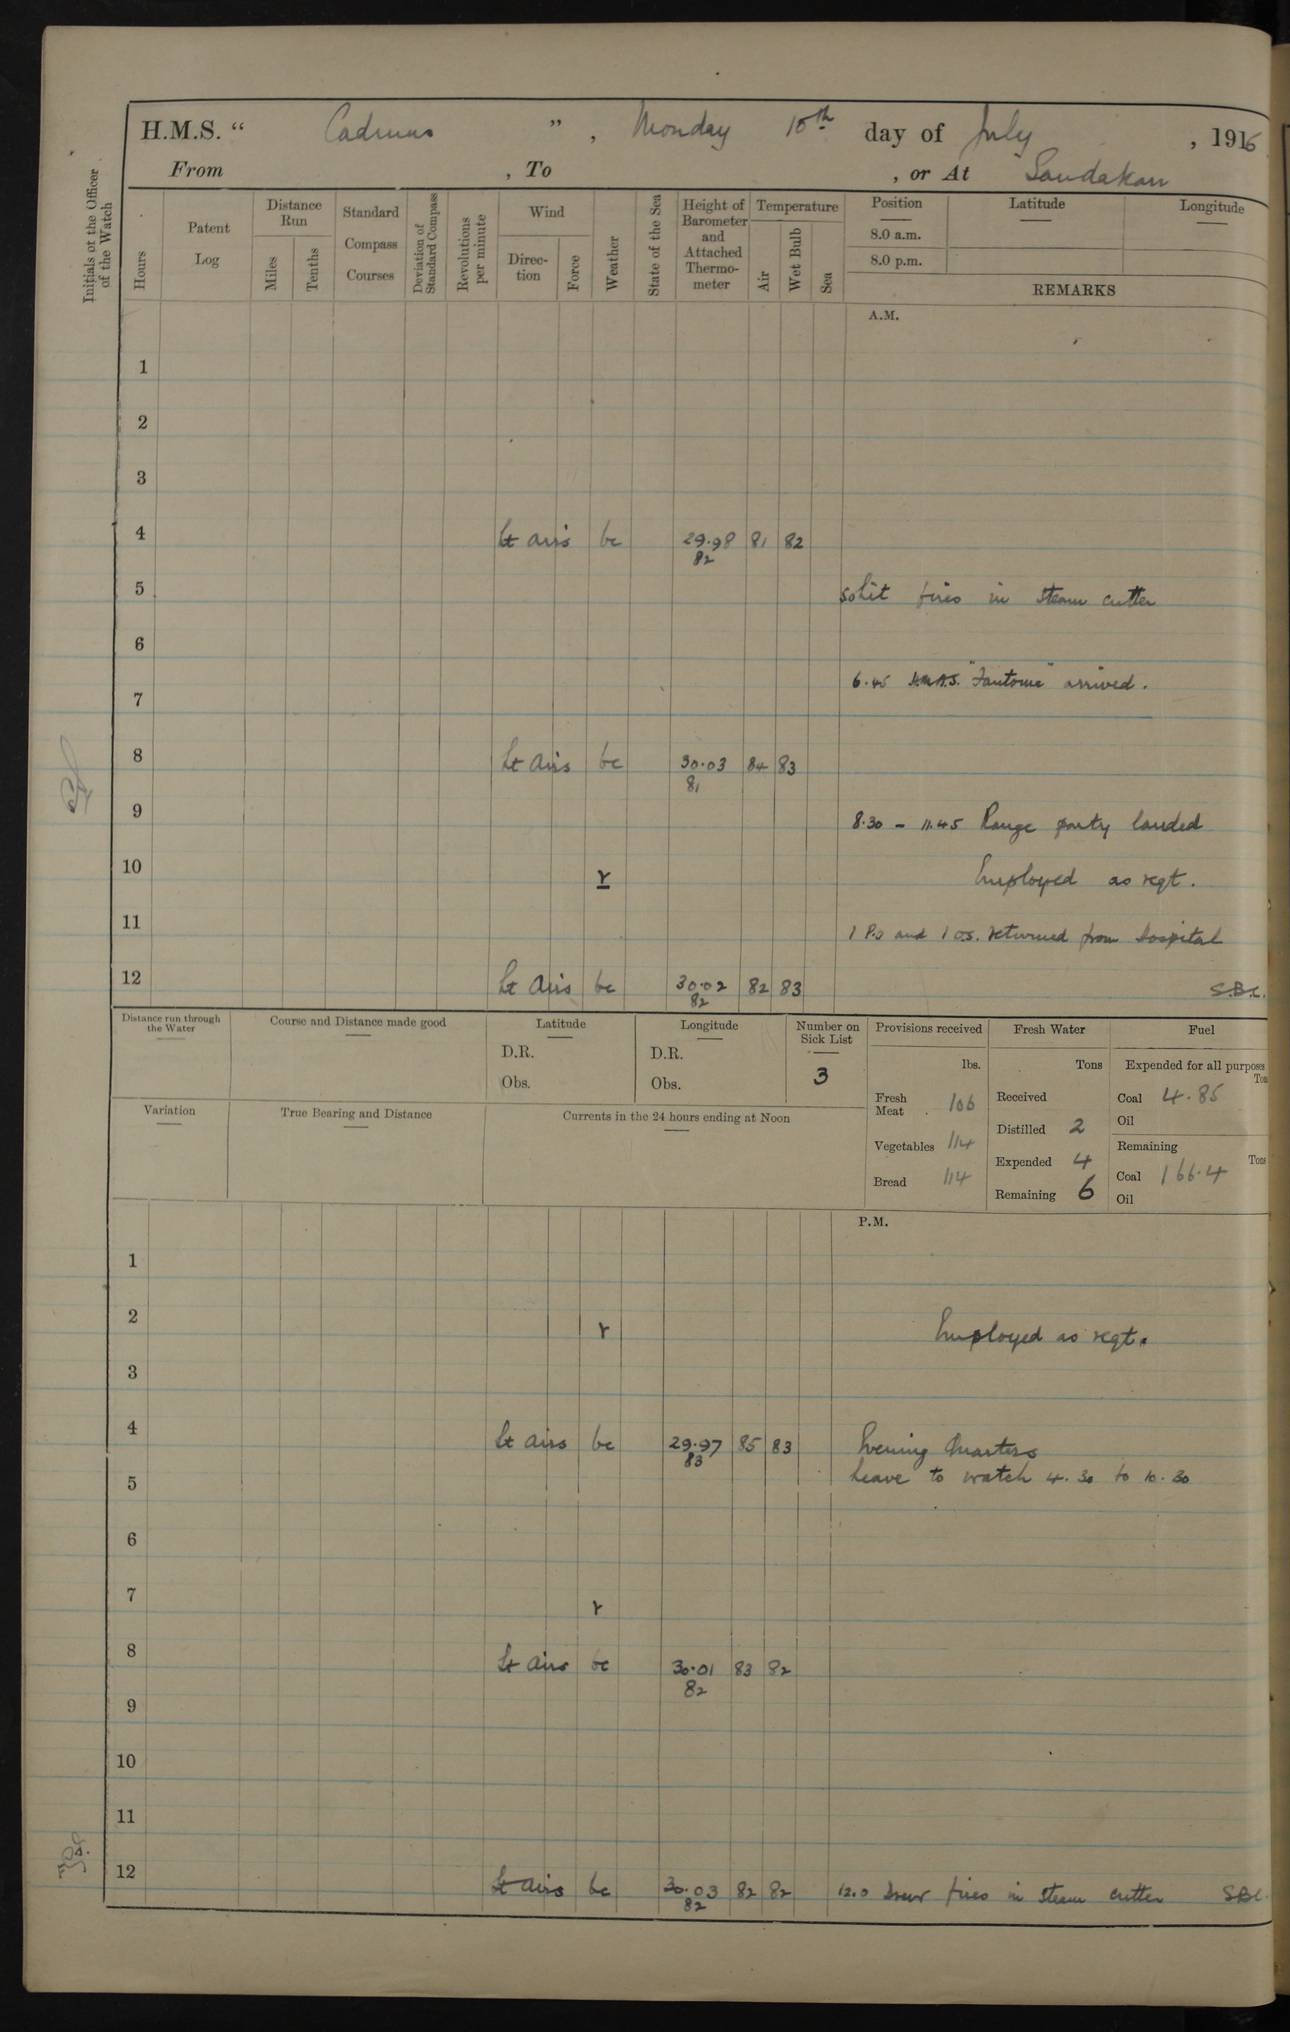 H.M.S. “ Cadmus ” , Monday 10th day of July , 1916
From , To , or At Sandakan
Initials of the Officer of the Watch
Hours
Patent Log
Distance Run
Miles
Tenths
Standard Compass Courses
Deviation of Standard Compass
Revolutions per minute
Wind
Direction
Force
Weather
State of the Sea
Height of Barometer and Attached Thermometer
Temperature
Air
Wet Bulb
Sea
Position Latitude Longitude
8.0 a.m.
8.0 p.m.
REMARKS
A.M.
1
2
3
4 Lt airs bc 29.98 81 82
82
5 Lit fires in steam cutter
6
6.45 H.M.A.S. "Fantome" arrived.
7
8 Lt airs bc 30.03 84 83
81
9 8.30 – 11.45 Range party landed
10 r Employed as reqt.
11 1 P.O and 1 O.S. returned from hospital
12 Lt airs bc 30.02 82 83
82 S.B.C.
Distance run through the Water
Course and Distance made good
Latitude
D.R.
Obs.
Longitude
D.R.
Obs.
Number on Sick List
3
Provisions received
lbs.
Fresh Meat 106
Vegetables 114
Bread 114
Fresh Water
Tons
Received
Distilled 2
Expended 4
Remaining 6
Fuel
Expended for all purposes
Coal 4.85
Oil
Remaining
Tons
Coal 166.4
Oil
Variation
True Bearing and Distance
Currents in the 24 hours ending at Noon
P.M.
1
2 r Employed as reqt.
3
4 Lt airs bc 29.97 85 83 Evening Quarters
83
5 Leave to watch 4.30 to 10.30
6
7 r
8 Lt airs bc 30.01 83 82
82
9
10
11
12 Lt airs bc 30.03 82 82 12.0 Drew fires in steam cutter S.B.C.
82